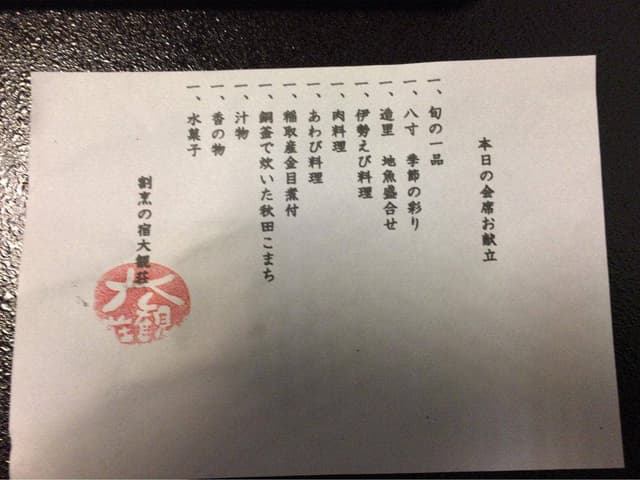 本日の会席お献立
一、旬の一品
一、八寸　季節の彩り
一、造里　地魚盛合せ
一、伊勢えび料理
一、肉料理
一、あわび料理
一、稲取産金目煮付
一、銅釜で炊いた秋田こまち
一、汁物
一、香の物
一、水菓子
割烹の宿大観荘
大観荘